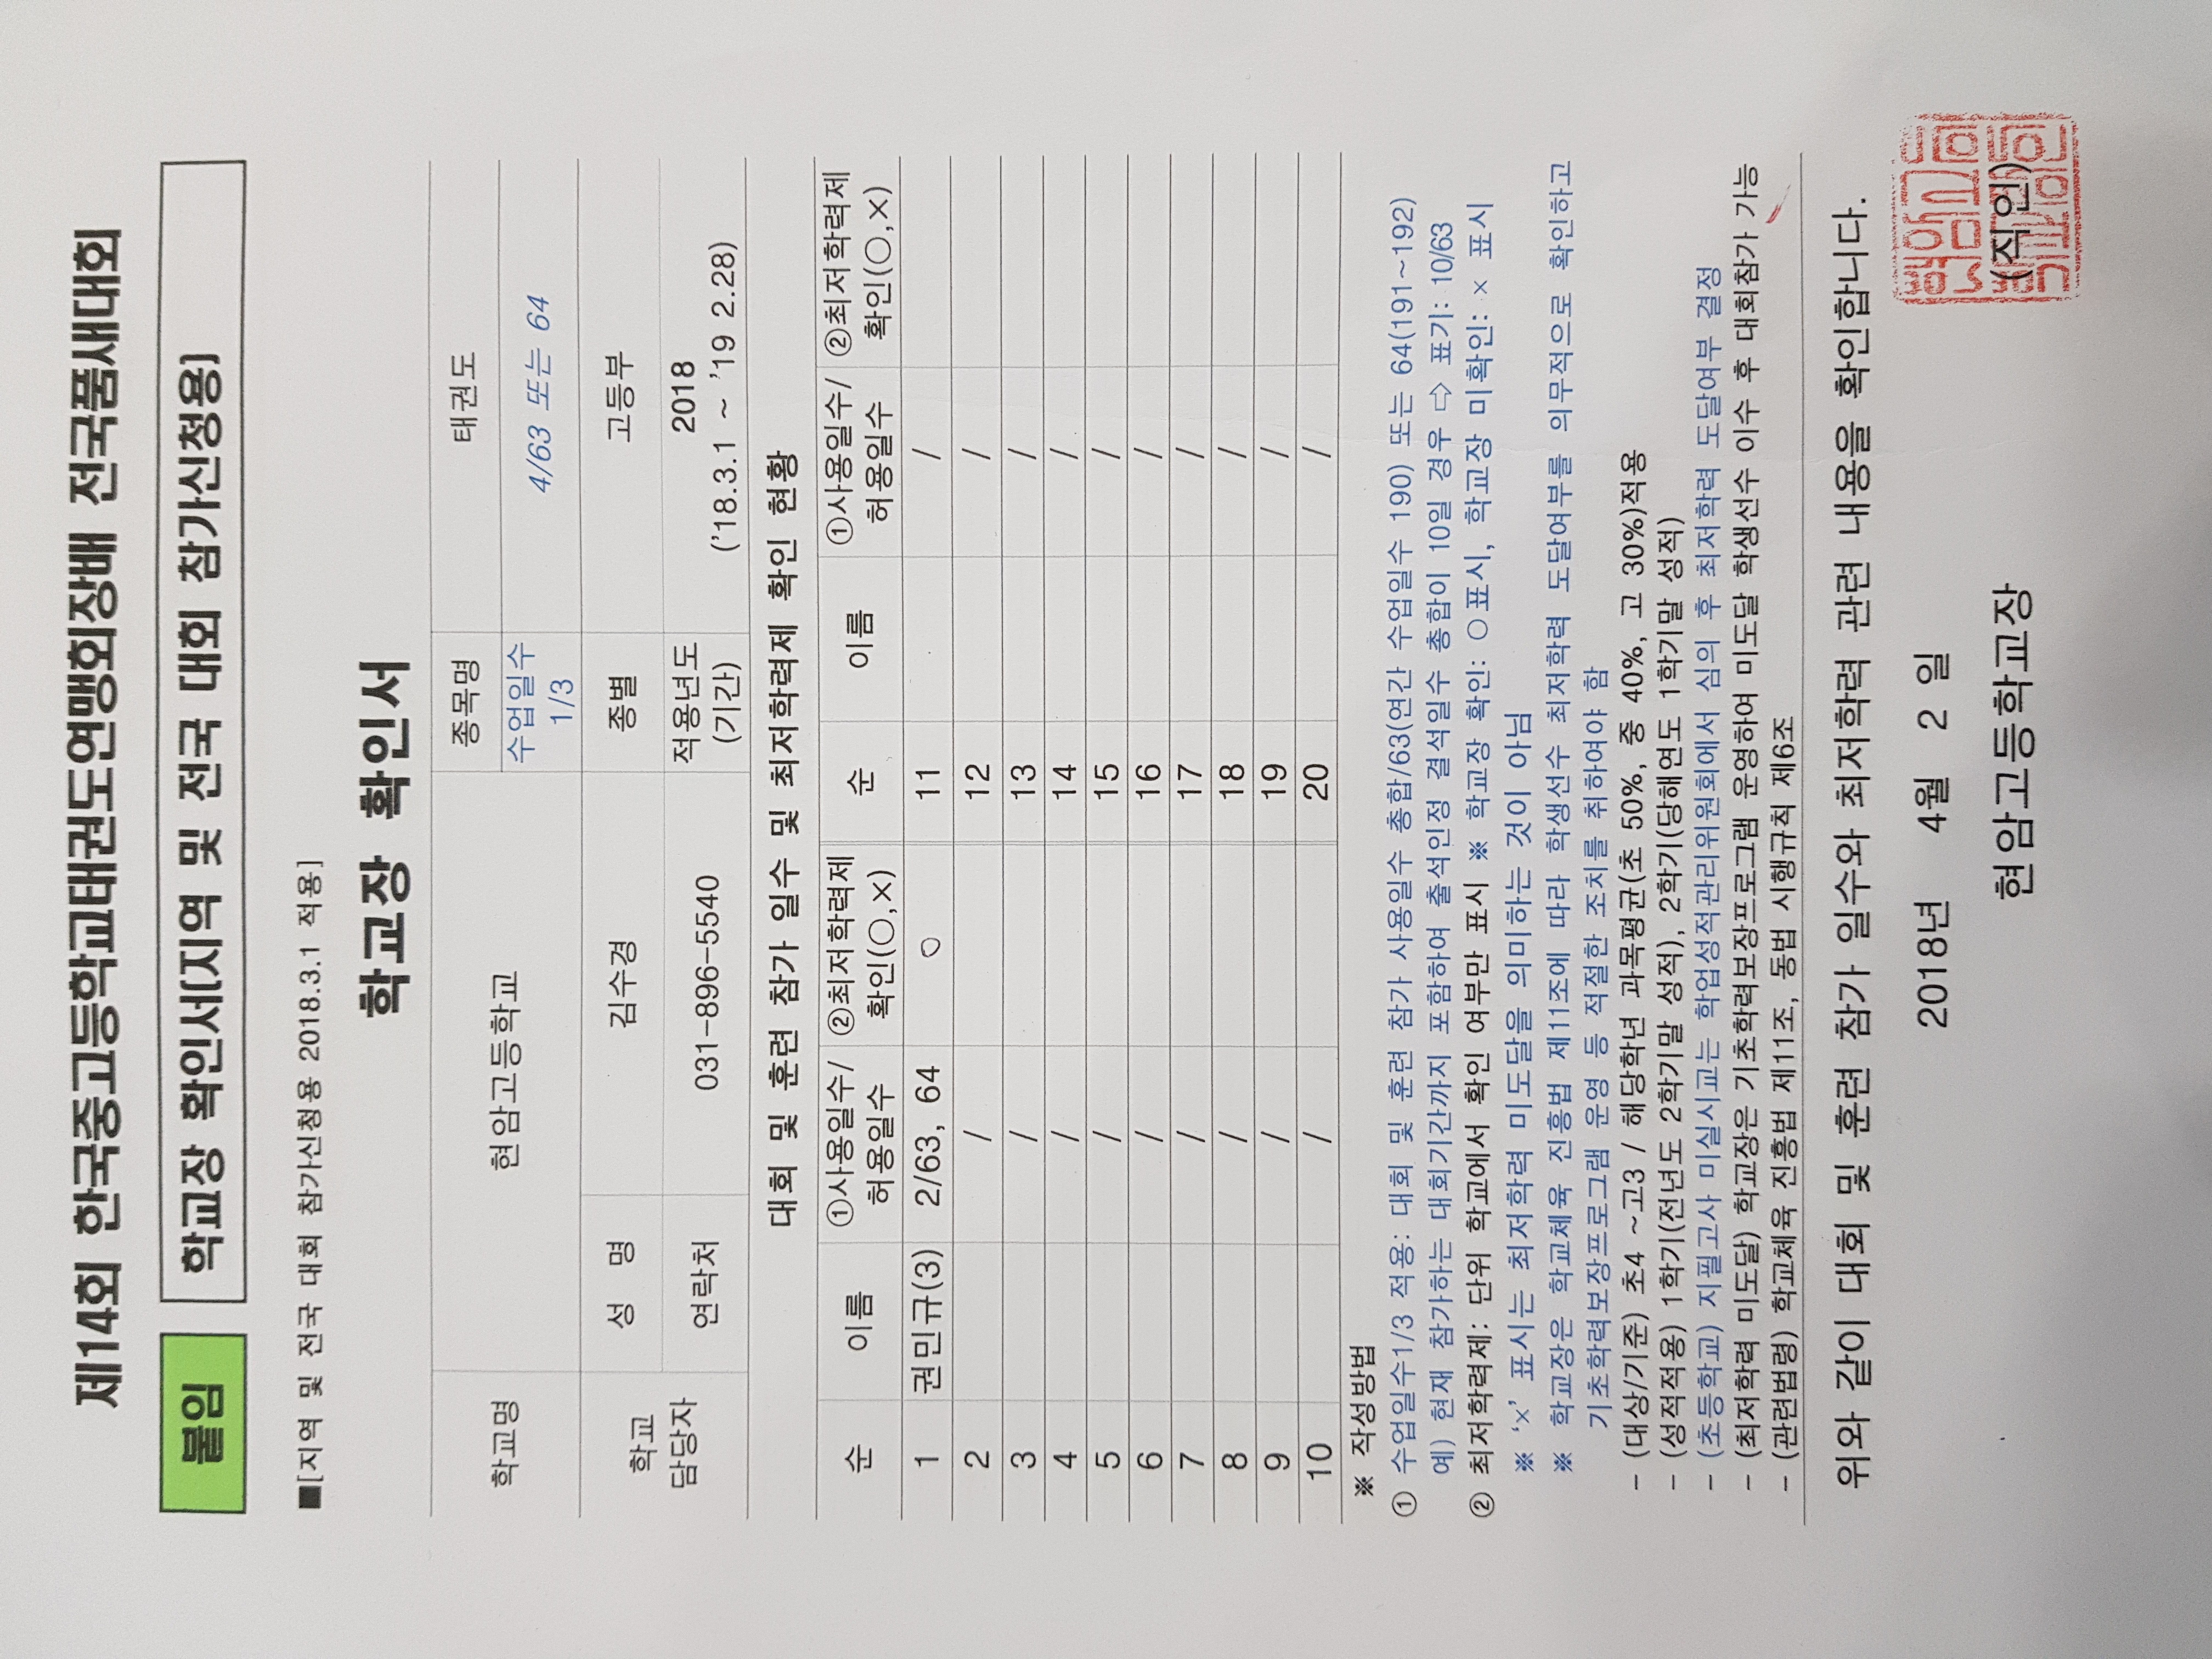 제14회 한국중고등학교태권도연맹회장배 전국품새대회
붙임 학교장 확인서(지역 및 전국 대회 참가신청용)
■[지역 및 전국 대회 참가신청용 2018.3.1 적용]
학교장 확인서
학교명 현암고등학교 종목명 태권도
수업일수 1/3 4/63 또는 64
학교 담당자 성 명 김수경 종별 고등부
연락처 031-896-5540 적용년도 (기간) 2018 ('18.3.1 ~ '19 2.28)
대회 및 훈련 참가 일수 및 최저학력제 확인 현황
순 이름 ①사용일수/ 허용일수 ②최저학력제 확인(○,×) 순 이름 ①사용일수/ 허용일수 ②최저학력제 확인(○,×)
1 권민규(3) 2/63, 64 ○ 11 /
2 / 12 /
3 / 13 /
4 / 14 /
5 / 15 /
6 / 16 /
7 / 17 /
8 / 18 /
9 / 19 /
10 / 20 /
※ 작성방법
① 수업일수1/3 적용: 대회 및 훈련 참가 사용일수 총합/63(연간 수업일수 190) 또는 64(191~192)
예) 현재 참가하는 대회기간까지 포함하여 출석인정 결석일수 총합이 10일 경우 ⇨ 표기: 10/63
② 최저학력제: 단위 학교에서 확인 여부만 표시 ※ 학교장 확인: ○ 표시, 학교장 미확인: × 표시
※ '×' 표시는 최저학력 미도달을 의미하는 것이 아님
※ 학교장은 학교체육 진흥법 제11조에 따라 학생선수 최저학력 도달여부를 의무적으로 확인하고
기초학력보장프로그램 운영 등 적절한 조치를 취하여야 함
- (대상/기준) 초4 ~고3 / 해당학년 과목평균(초 50%, 중 40%, 고 30%)적용
- (성적적용) 1학기(전년도 2학기말 성적), 2학기(당해연도 1학기말 성적)
- (초등학교) 지필고사 미실시교는 학업성적관리위원회에서 심의 후 최저학력 도달여부 결정
- (최저학력 미도달) 학교장은 기초학력보장프로그램 운영하여 미도달 학생선수 이수 후 대회참가 가능
- (관련법령) 학교체육 진흥법 제11조, 동법 시행규칙 제6조
위와 같이 대회 및 훈련 참가 일수와 최저학력 관련 내용을 확인합니다.
2018년 4월 2 일
현암고등학교장 (직인)